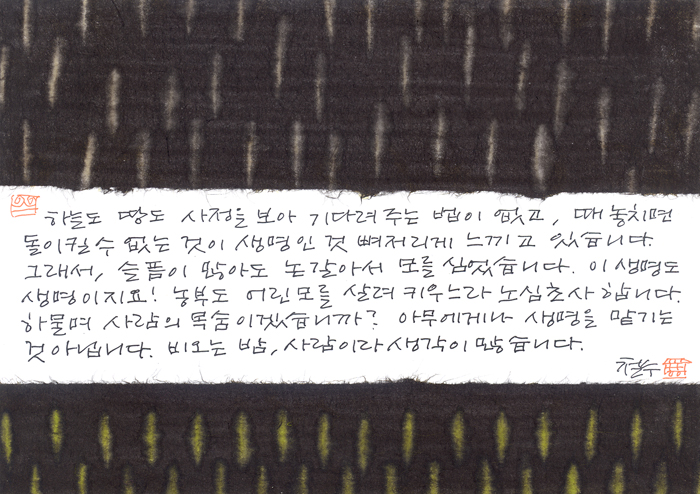 하늘도 땅도 사정을 보아 기다려주는 법이 없고, 때 놓치면
돌이킬 수 없는 것이 생명인 것 뼈저리게 느끼고 있습니다.
그래서, 슬픔이 많아도 논갈아서 모를 심었습니다. 이 생명도
생명이지요! 농부도 어린모를 살려 키우느라 노심초사 합니다.
하물며 사람의 목숨이겠습니까? 아무에게나 생명을 맡기는
것 아닙니다. 비오는 밤, 사람이라 생각이 많습니다.
철수